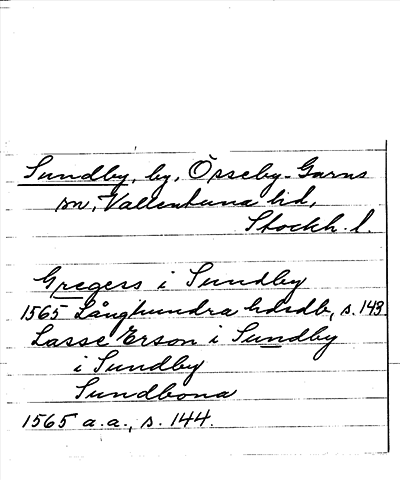 Sundby, by, Össeby-Garns
sn, Vallentuna hd,
Stockh. l.
Gregers i Sundby
1565 Långhundra hdsdb, s. 143
Lasse Erson i Sundby
i Sundby
Sundbona
1565 a.a., s. 144.